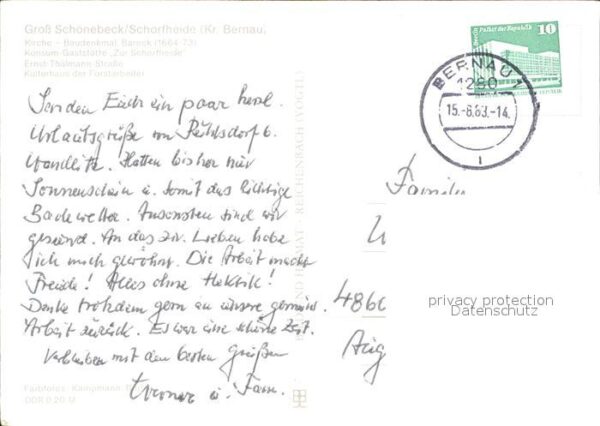 Groß Schönebeck/Schorfheide (Kr. Bernau)
Kirche – Baudenkmal, Barock (1664-73)
Konsum-Gaststätte "Zur Schorfheide"
Ernst-Thälmann-Straße
Kulturhaus der Forstarbeiter
Senden Euch ein paar herzl.
Urlaubsgrüße von Rühlsdorf b.
Wandlitz. Hatten bisher nur
Sonnenschein u. somit das richtige
Badewetter. Ansonsten sind wir
gesund. An das ziv. Leben habe
ich mich gewöhnt. Die Arbeit macht
Freude! Alles ohne Hektik!
Denke trotzdem gern an unsere gemeins.
Arbeit zurück. Es war eine schöne Zeit.
Verbleiben mit den besten Grüßen
Werner u. Fam.
Farbfotos: Kampmann
DDR 0,20 M
BILD UND HEIMAT · REICHENBACH (VOGTL)
Palast der Republik
10
BERNAU 1
1280
15.-8.83.-14
Familie
486
privacy protection
Datenschutz